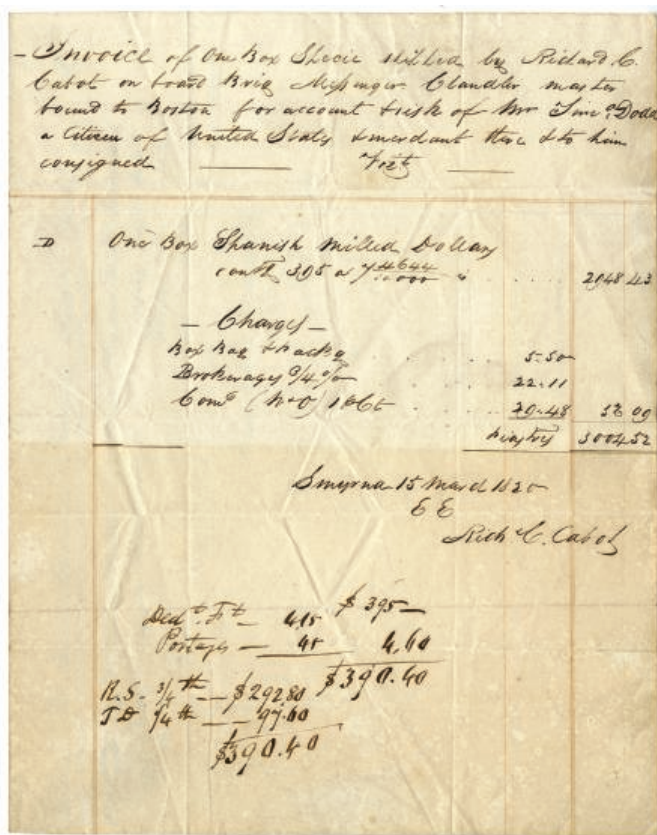 Invoice of One Box Specie shipped by Richard C.
Cabot on board Brig Messenger Chandler master
bound to Boston for account & risk of Mr Timo. Dodd
a Citizen of United States & merchant there & to him
consigned Vizt
D One Box Spanish Milled Dollars
contg 395 a 2948.43
- Charges -
Box Bag & packg 5.50
Brokerages 3/4 % 22.11
Como 1 Ct 29.48 57 09
piastres 3005.52
Smyrna 15 March 1820
E E
Rich. C. Cabot
Dedt. Ft - 4.15 $395 -
Postages - 45 4.60
$390.40
R.S. 3/4 th - $292.80
T D 1/4 th - 97.60
$390.40